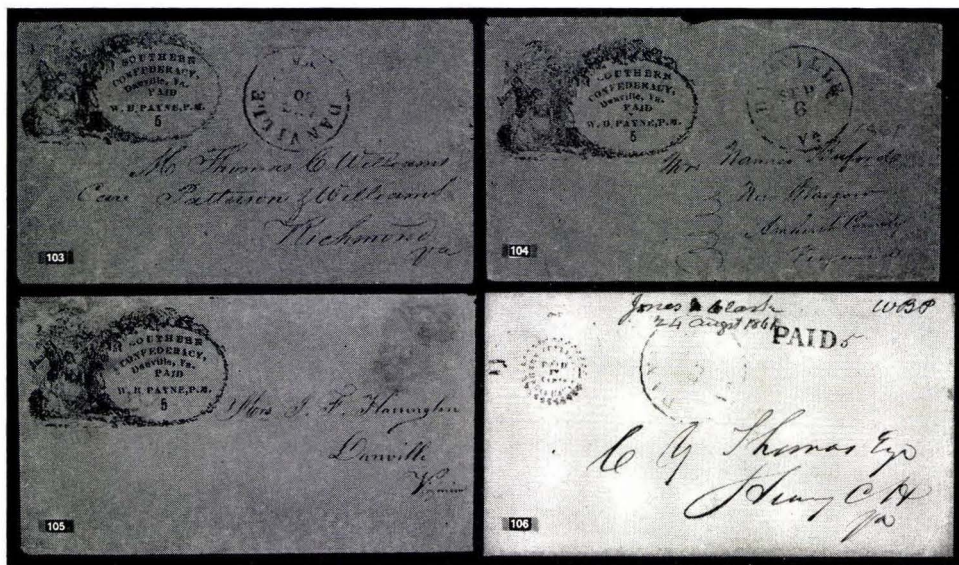 SOUTHERN
CONFEDERACY,
Danville, Va.
PAID
W. B. PAYNE, P.M.
5
DANVILLE
Va.
Mr Thomas C Williams
Care Patterson & Williams
Richmond
Va
103
SOUTHERN
CONFEDERACY,
Danville, Va.
PAID
W. B. PAYNE, P.M.
5
DANVILLE
SEP
6
Va.
Mrs Nannie
New Glasgow
Amherst County
Virginia
104
SOUTHERN
CONFEDERACY,
Danville, Va.
PAID
W. B. PAYNE, P.M.
5
Mrs J. F. Harrington
Danville
Virginia
105
Jones & Clark
24 August 1861
WBP
PAID 5
PAID
C Y Thomas Esqr
Henry C H
Va
106